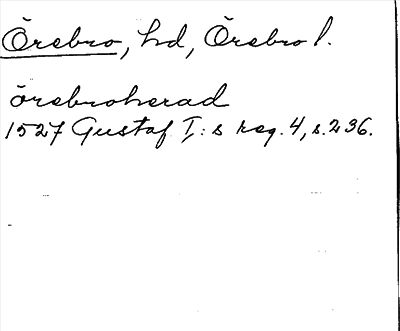 Örebro, hd, Örebro l.
örebroherad
1527 Gustaf I:s reg. 4, s. 236.